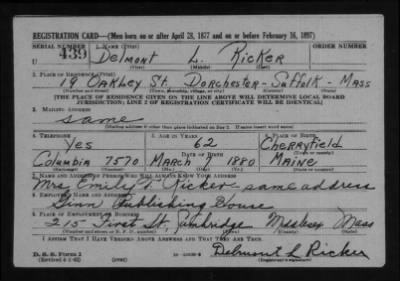 REGISTRATION CARD—(Men born on or after April 28, 1877 and on or before February 16, 1897)
SERIAL NUMBER 1. NAME (Print) ORDER NUMBER
U 439 Delmont L. Ricker
(First) (Middle) (Last)
2. PLACE OF RESIDENCE (Print)
19 Oakley St. Dorchester - Suffolk - Mass
(Number and street) (Town, township, village, or city) (County) (State)
[THE PLACE OF RESIDENCE GIVEN ON THE LINE ABOVE WILL DETERMINE LOCAL BOARD
JURISDICTION; LINE 2 OF REGISTRATION CERTIFICATE WILL BE IDENTICAL]
3. MAILING ADDRESS
same
(Mailing address if other than place indicated on line 2. If same insert word same)
4. TELEPHONE 5. AGE IN YEARS 6. PLACE OF BIRTH
Yes 62 Cherryfield
DATE OF BIRTH
Columbia 7570 March 7 1880 Maine
7. NAME AND ADDRESS OF PERSON WHO WILL ALWAYS KNOW YOUR ADDRESS
Mrs. Emily Ricker same address
8. EMPLOYER'S NAME AND ADDRESS
Ginn Publishing House
9. PLACE OF EMPLOYMENT OR BUSINESS
215 First St, Cambridge Middlesex Mass
(Number and street or R. F. D. number) (Town) (County) (State)
I AFFIRM THAT I HAVE VERIFIED ABOVE ANSWERS AND THAT THEY ARE TRUE.
D. S. S. Form 1
Delmont L Ricker